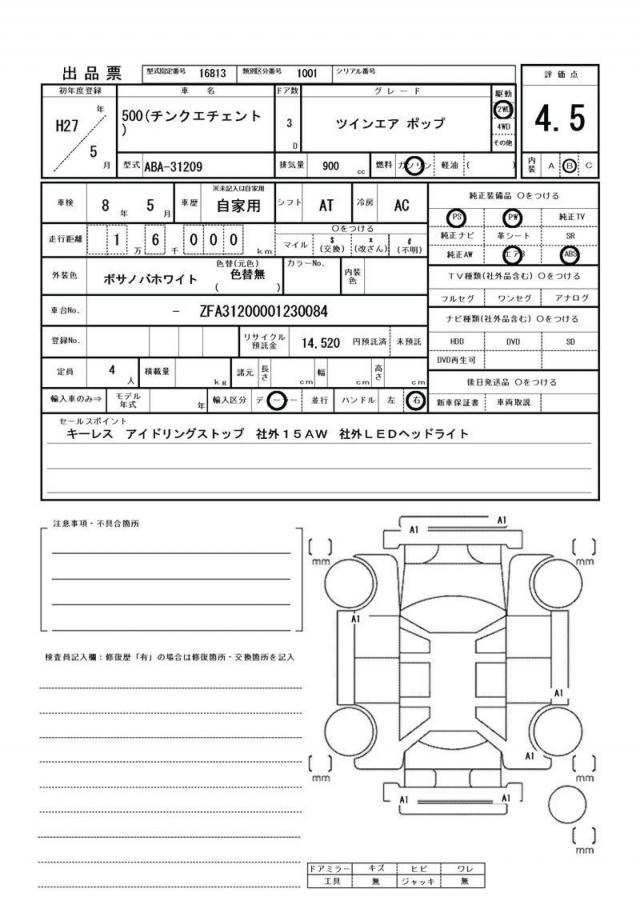 出品票 型式指定番号 16813 類別区分番号 1001 シリアル番号
初年度登録 車名 ドア数 グレード 駆動 評価点
H27 年 5 月 500(チンクエチェント) 3 D ツインエア ポップ 2WD 4WD その他 4.5
型式 ABA-31209 排気量 900 cc 燃料 ガソリン 軽油 ( ) 内装 A B C
車検 8 年 5 月 車歴 ※未記入は自家用 自家用 シフト AT 冷房 AC
純正装備品 〇をつける
PS PW 純正TV
走行距離 1 万 6 千 0 0 0 km 〇をつける マイル $ (交換) x (改ざん) # (不明)
純正ナビ 革シート SR
純正AW エアB ABS
外装色 ボサノバホワイト 色替(元色) 色替無 ( ) カラーNo. 内装色
TV種類(社外品含む) 〇をつける
フルセグ ワンセグ アナログ
車台No. - ZFA31200001230084
ナビ種類(社外品含む) 〇をつける
登録No. リサイクル預託金 14,520 円預託済 未預託
HDD DVD SD
DVD再生可
定員 4 人 積載量 kg 諸元 長さ cm 幅 cm 高さ cm
後日発送品 〇をつける
輸入車のみ⇒ モデル年式 年 輸入区分 ディーラー 並行 ハンドル 左 右
新車保証書 車両取説
セールスポイント
キーレス アイドリングストップ 社外15AW 社外LEDヘッドライト
注意事項・不具合箇所
A1
A1
mm
mm
A1
検査員記入欄:修復歴「有」の場合は修復箇所・交換箇所を記入
A1
A1
mm
mm
A1
A1
mm
ドアミラー キズ ヒビ ワレ
工具 無 ジャッキ 無